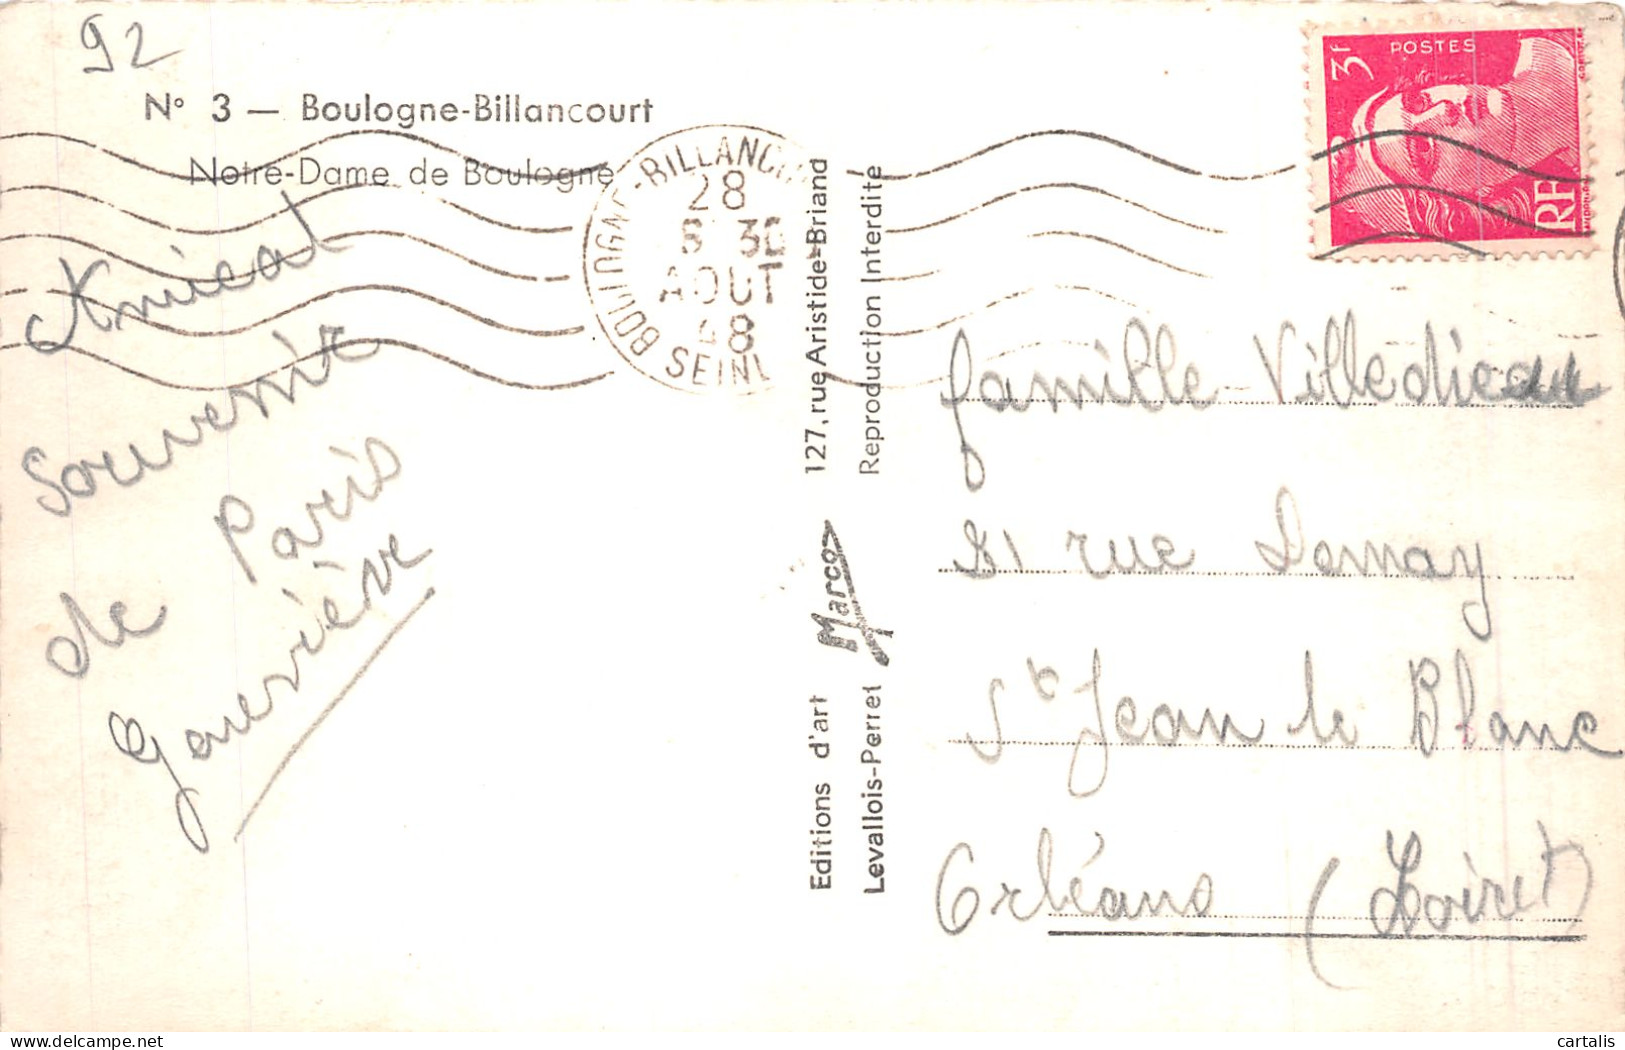 92
N° 3 — Boulogne-Billancourt
Notre-Dame de Boulogne
BOULOGNE-BILLANC
28
AOUT
SEINE
POSTES
3F
RF
Amical
Souvenir
de Paris
Geneviève
Editions d'art Marco 127, rue Aristide-Briand
Levallois-Perret Reproduction Interdite
famille Villedieu
rue Demay
St Jean le Blanc
Orléans (Loiret)
cartalis
delcampe.net